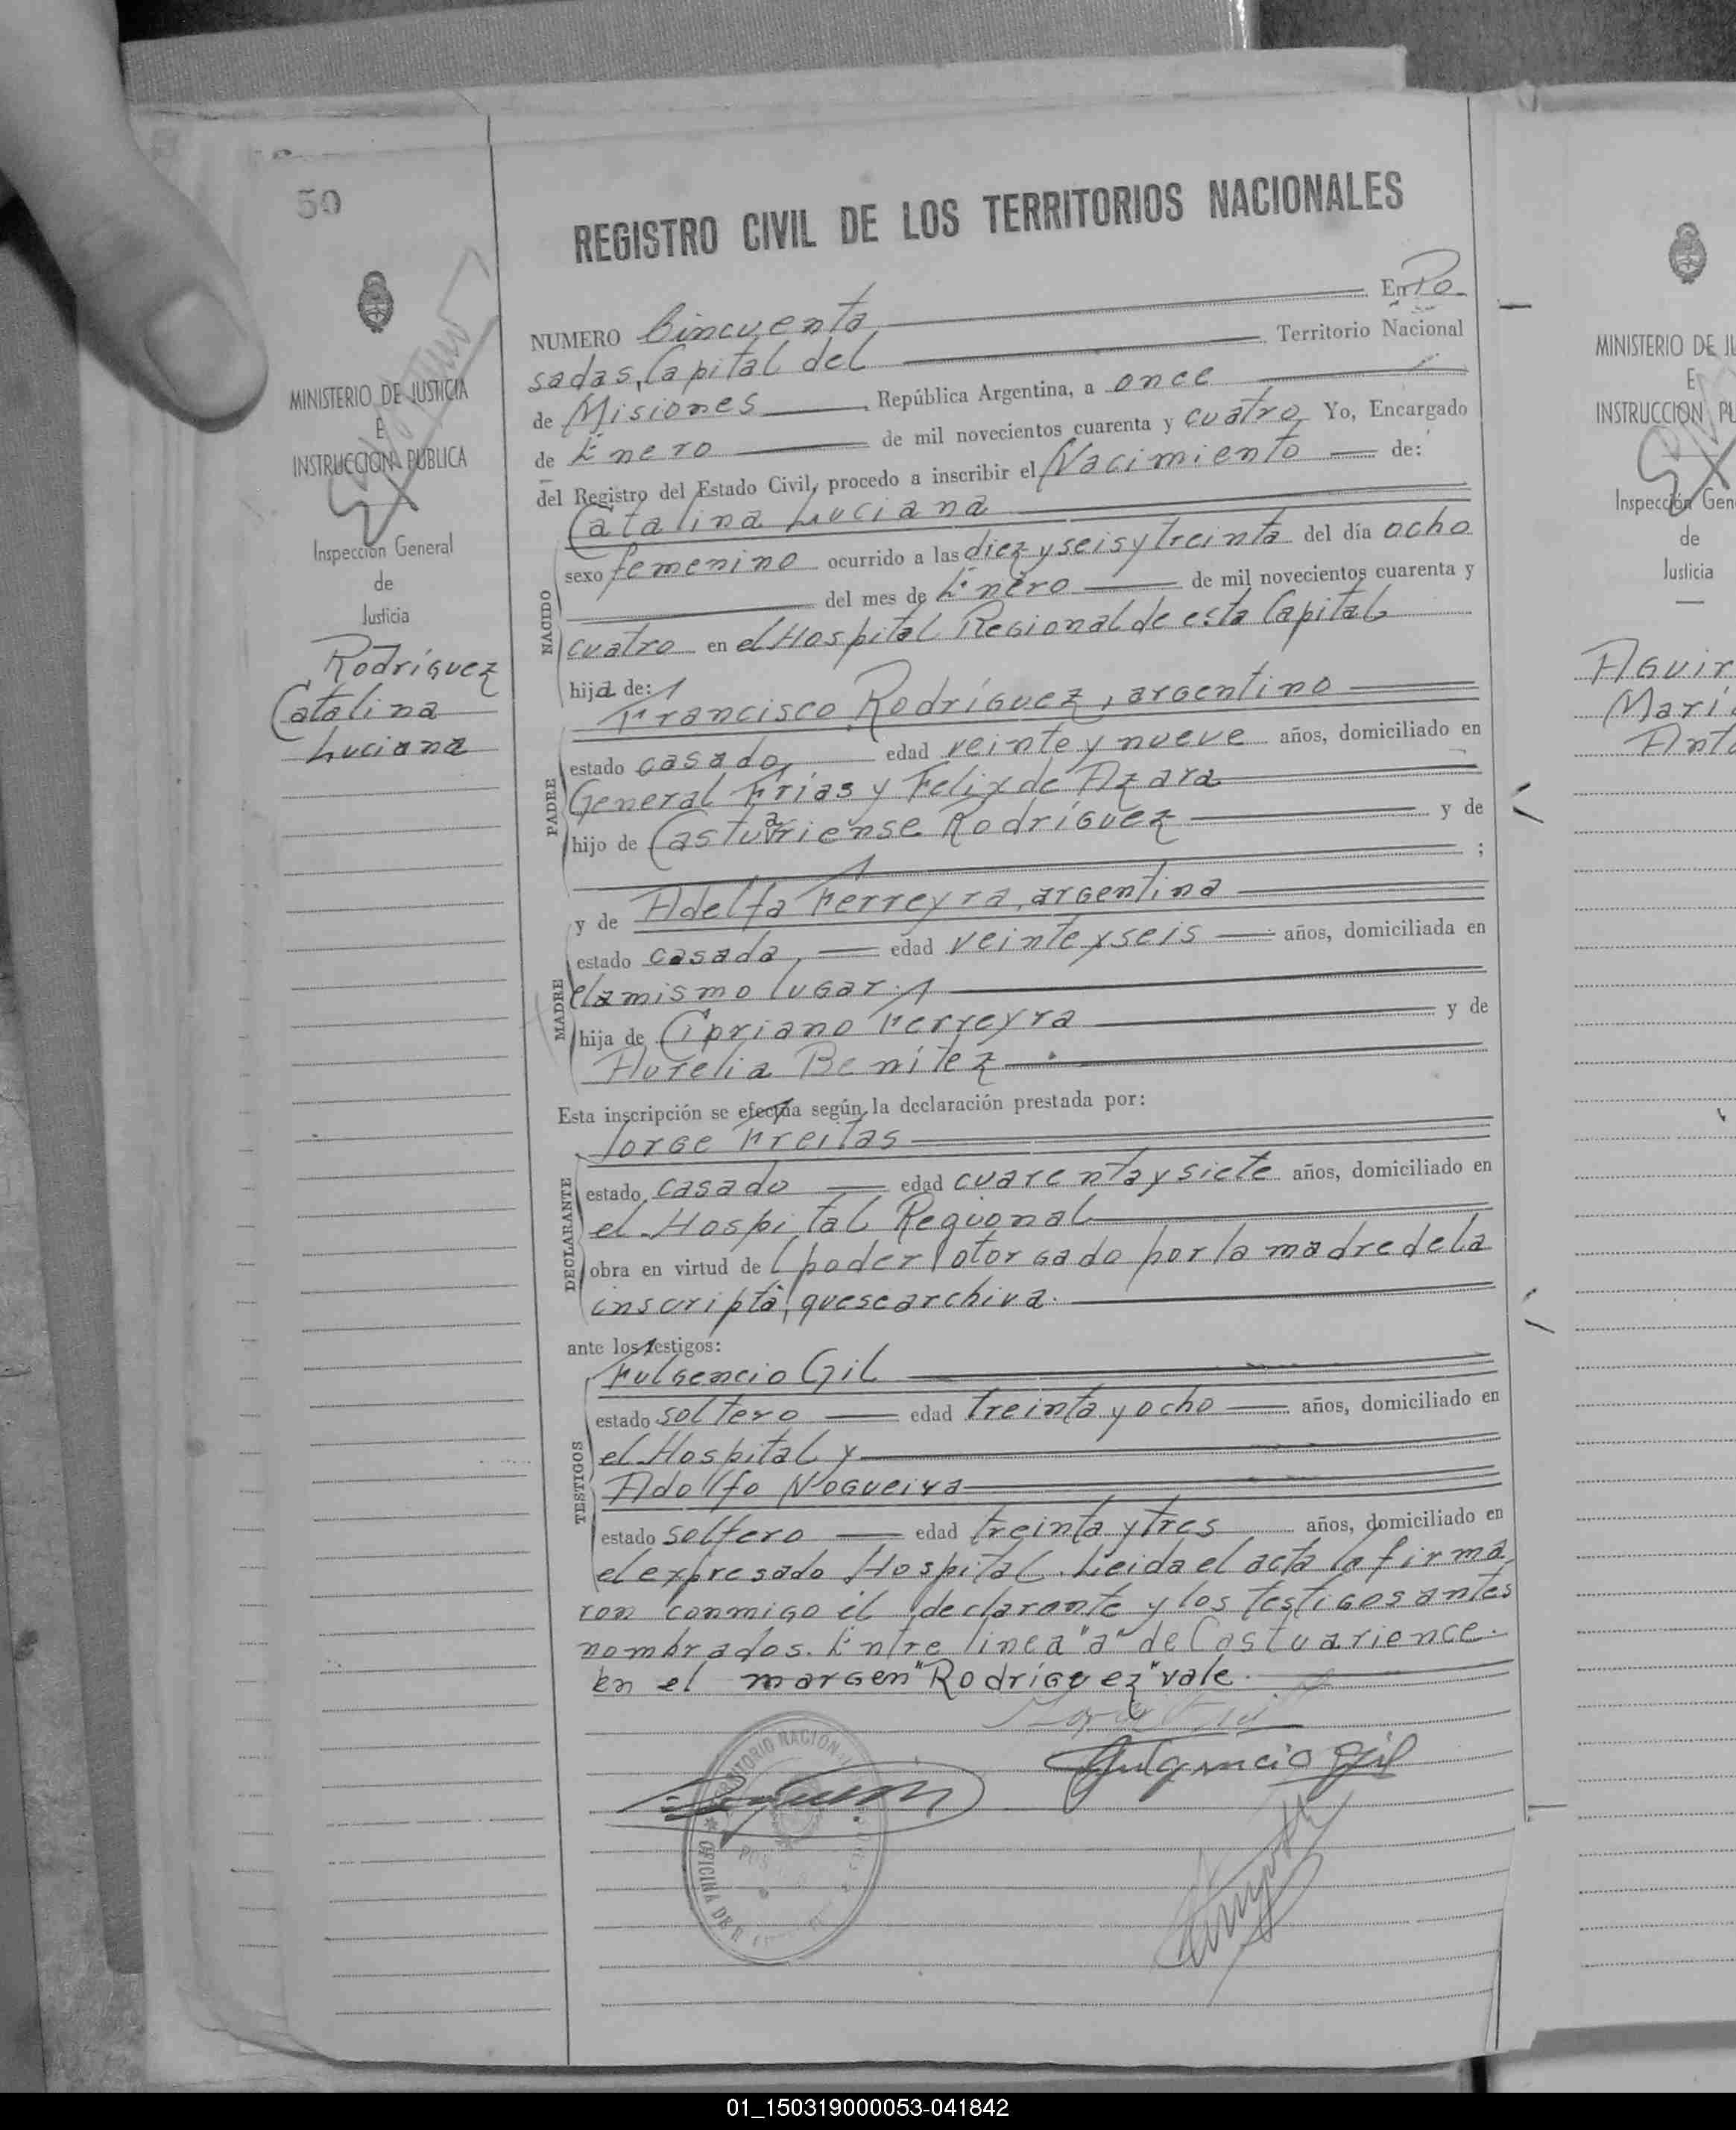 50
MINISTERIO DE JUSTICIA
E
INSTRUCCION PUBLICA
Inspección General
de
Justicia
Rodríguez
Catalina
Luciana
REGISTRO CIVIL DE LOS TERRITORIOS NACIONALES
NUMERO Cincuenta En Po
sadas, Capital del Territorio Nacional
de Misiones, República Argentina, a once
de Enero de mil novecientos cuarenta y cuatro Yo, Encargado
del Registro del Estado Civil, procedo a inscribir el Nacimiento de:
NACIDO
Catalina Luciana
sexo femenino ocurrido a las diez y seis y treinta del día ocho
del mes de Enero de mil novecientos cuarenta y
cuatro en el Hospital Regional de esta Capital
hija de:
PADRE
Francisco Rodríguez, argentino
estado casado, edad veinte y nueve años, domiciliado en
General Frías y Felix de Azara
hijo de Castuariense Rodríguez y de
;
MADRE
y de Adelfa Ferreyra, argentina
estado casada, edad veinte y seis años, domiciliada en
el mismo lugar.
hija de Cipriano Ferreyra y de
Aurelia Benítez
Esta inscripción se efectúa según la declaración prestada por:
DECLARANTE
Jorge Freitas
estado casado edad cuarenta y siete años, domiciliado en
el Hospital Regional
obra en virtud de poder otorgado por la madre de la
inscripta, que se archiva.
ante los testigos:
TESTIGOS
Fulgencio Gil
estado soltero edad treinta y ocho años, domiciliado en
el Hospital y
Adolfo Nogueira
estado soltero edad treinta y tres años, domiciliado en
el expresado Hospital. Leida el acta la firma
ron conmigo el declarante y los testigos antes
nombrados. Entre linea "a" de Castuarience.
En el margen "Rodríguez" vale.
Fulgencio Gil
TERRITORIO NACION
OFICINA DE R
MINISTERIO DE JU
E
INSTRUCCION PU
Inspección Gen
de
Justicia
Aguir
Mari
Anto
01_150319000053-041842